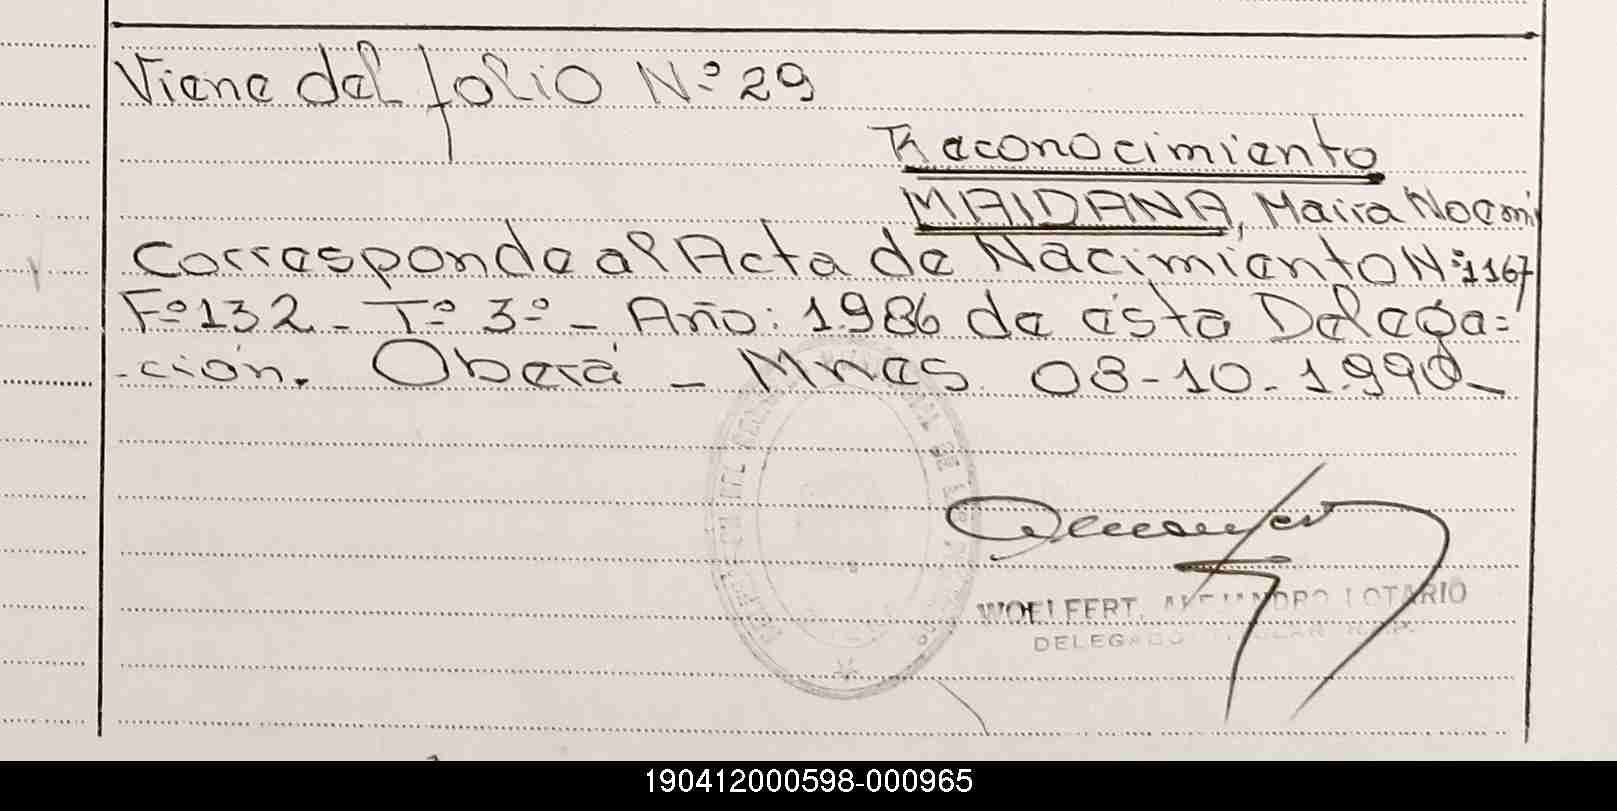 Viene del folio Nº 29
Reconocimiento
MAIDANA, Maira Noemi
Corresponde al Acta de Nacimiento Nº 1167
Fº 132 - Tº 3º - Año: 1.986 de ésta Delega=
-ción. Oberá - Mnes. 08-10-1.990-
WOELFERT, ALEJANDRO LOTARIO
DELEGADO TITULAR R.P.P.
190412000598-000965